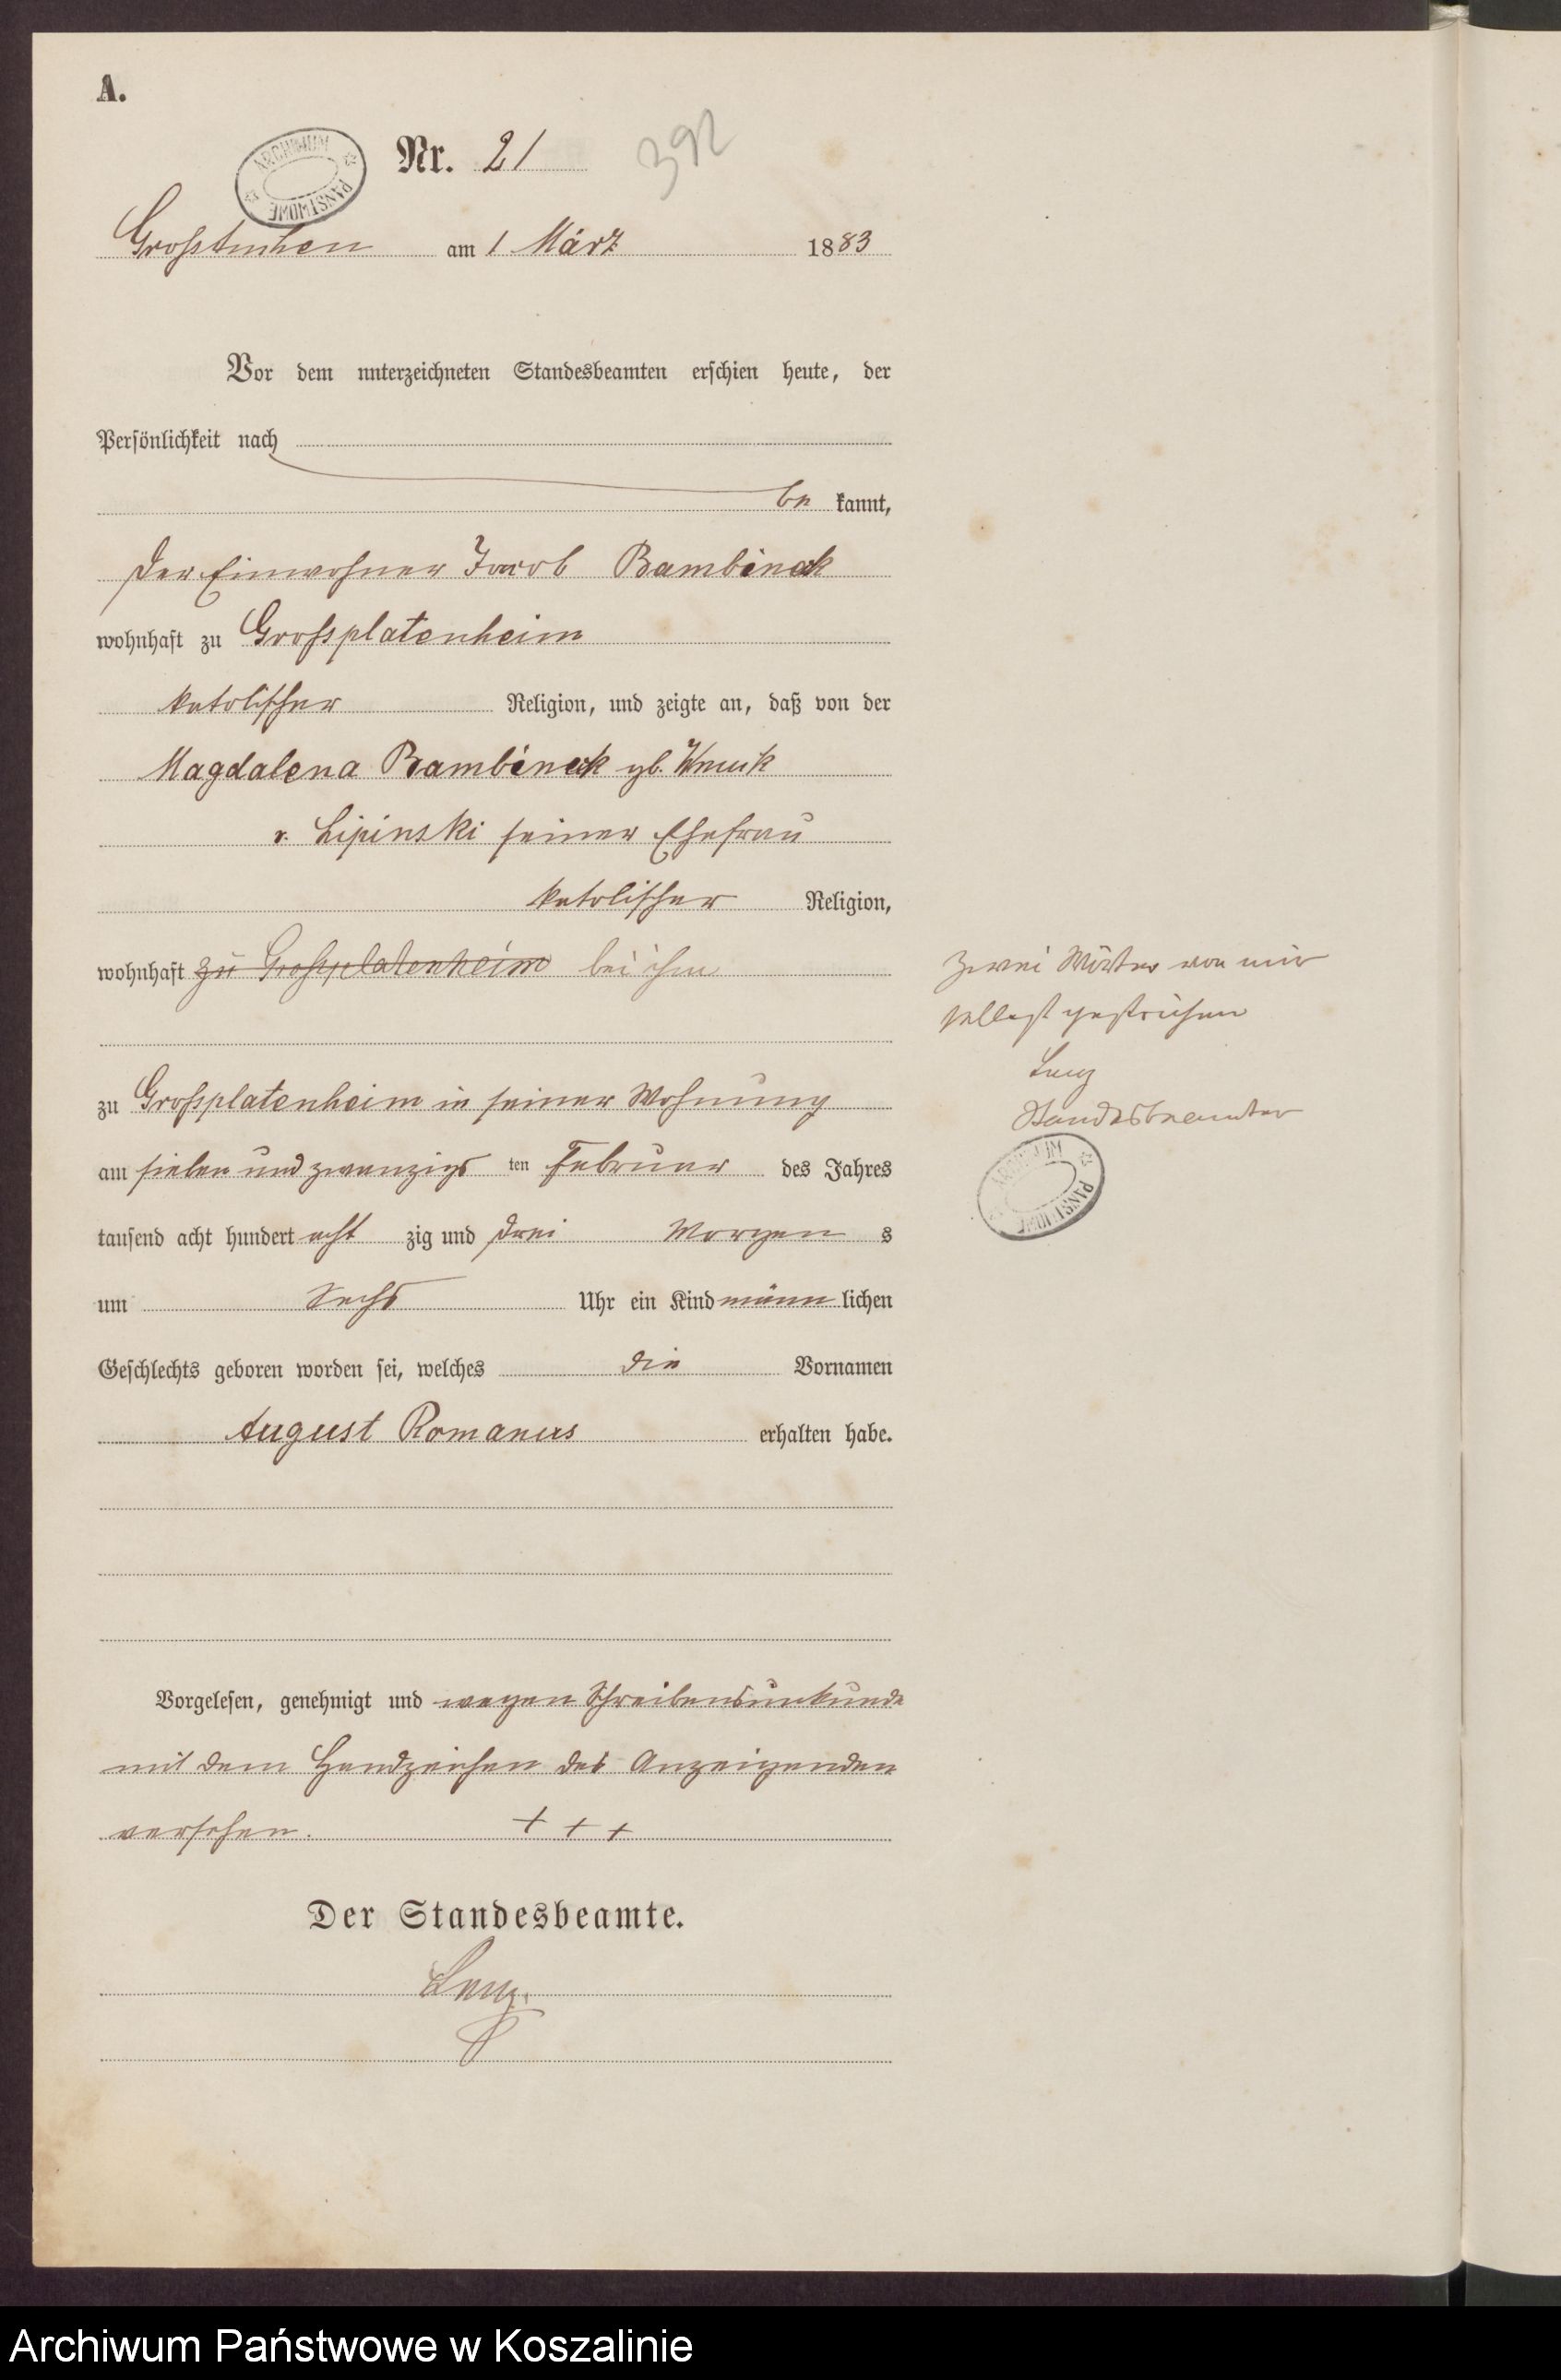 A.
ARCHIWUM PAŃSTWOWE
Nr. 21
392
Grosstuchen am 1 März 1883
Vor dem unterzeichneten Standesbeamten erschien heute, der
Persönlichkeit nach
be kannt,
der Einwohner Jacob Bambenek
wohnhaft zu Grossplatenheim
katolischer Religion, und zeigte an, daß von der
Magdalena Bambenek gb.
v. Lipinski seiner Ehefrau
katolischer Religion,
wohnhaft zu Grossplatenheim bei ihm
zu Grossplatenheim in seiner Wohnung
am sieben und zwanzigs ten Februar des Jahres
tausend acht hundert acht zig und drei Morgen s
um Sechs Uhr ein Kind männ lichen
Geschlechts geboren worden sei, welches die Vornamen
August Romanus erhalten habe.
Vorgelesen, genehmigt und wegen Schreibensunkunde
mit dem Handzeichen des Anzeigenden
versehen. + + +
Der Standesbeamte.
Lenz.
Zwei Wörter von mir
selbst gestrichen
Lenz
Standesbeamter
ARCHIWUM PAŃSTWOWE
Archiwum Państwowe w Koszalinie